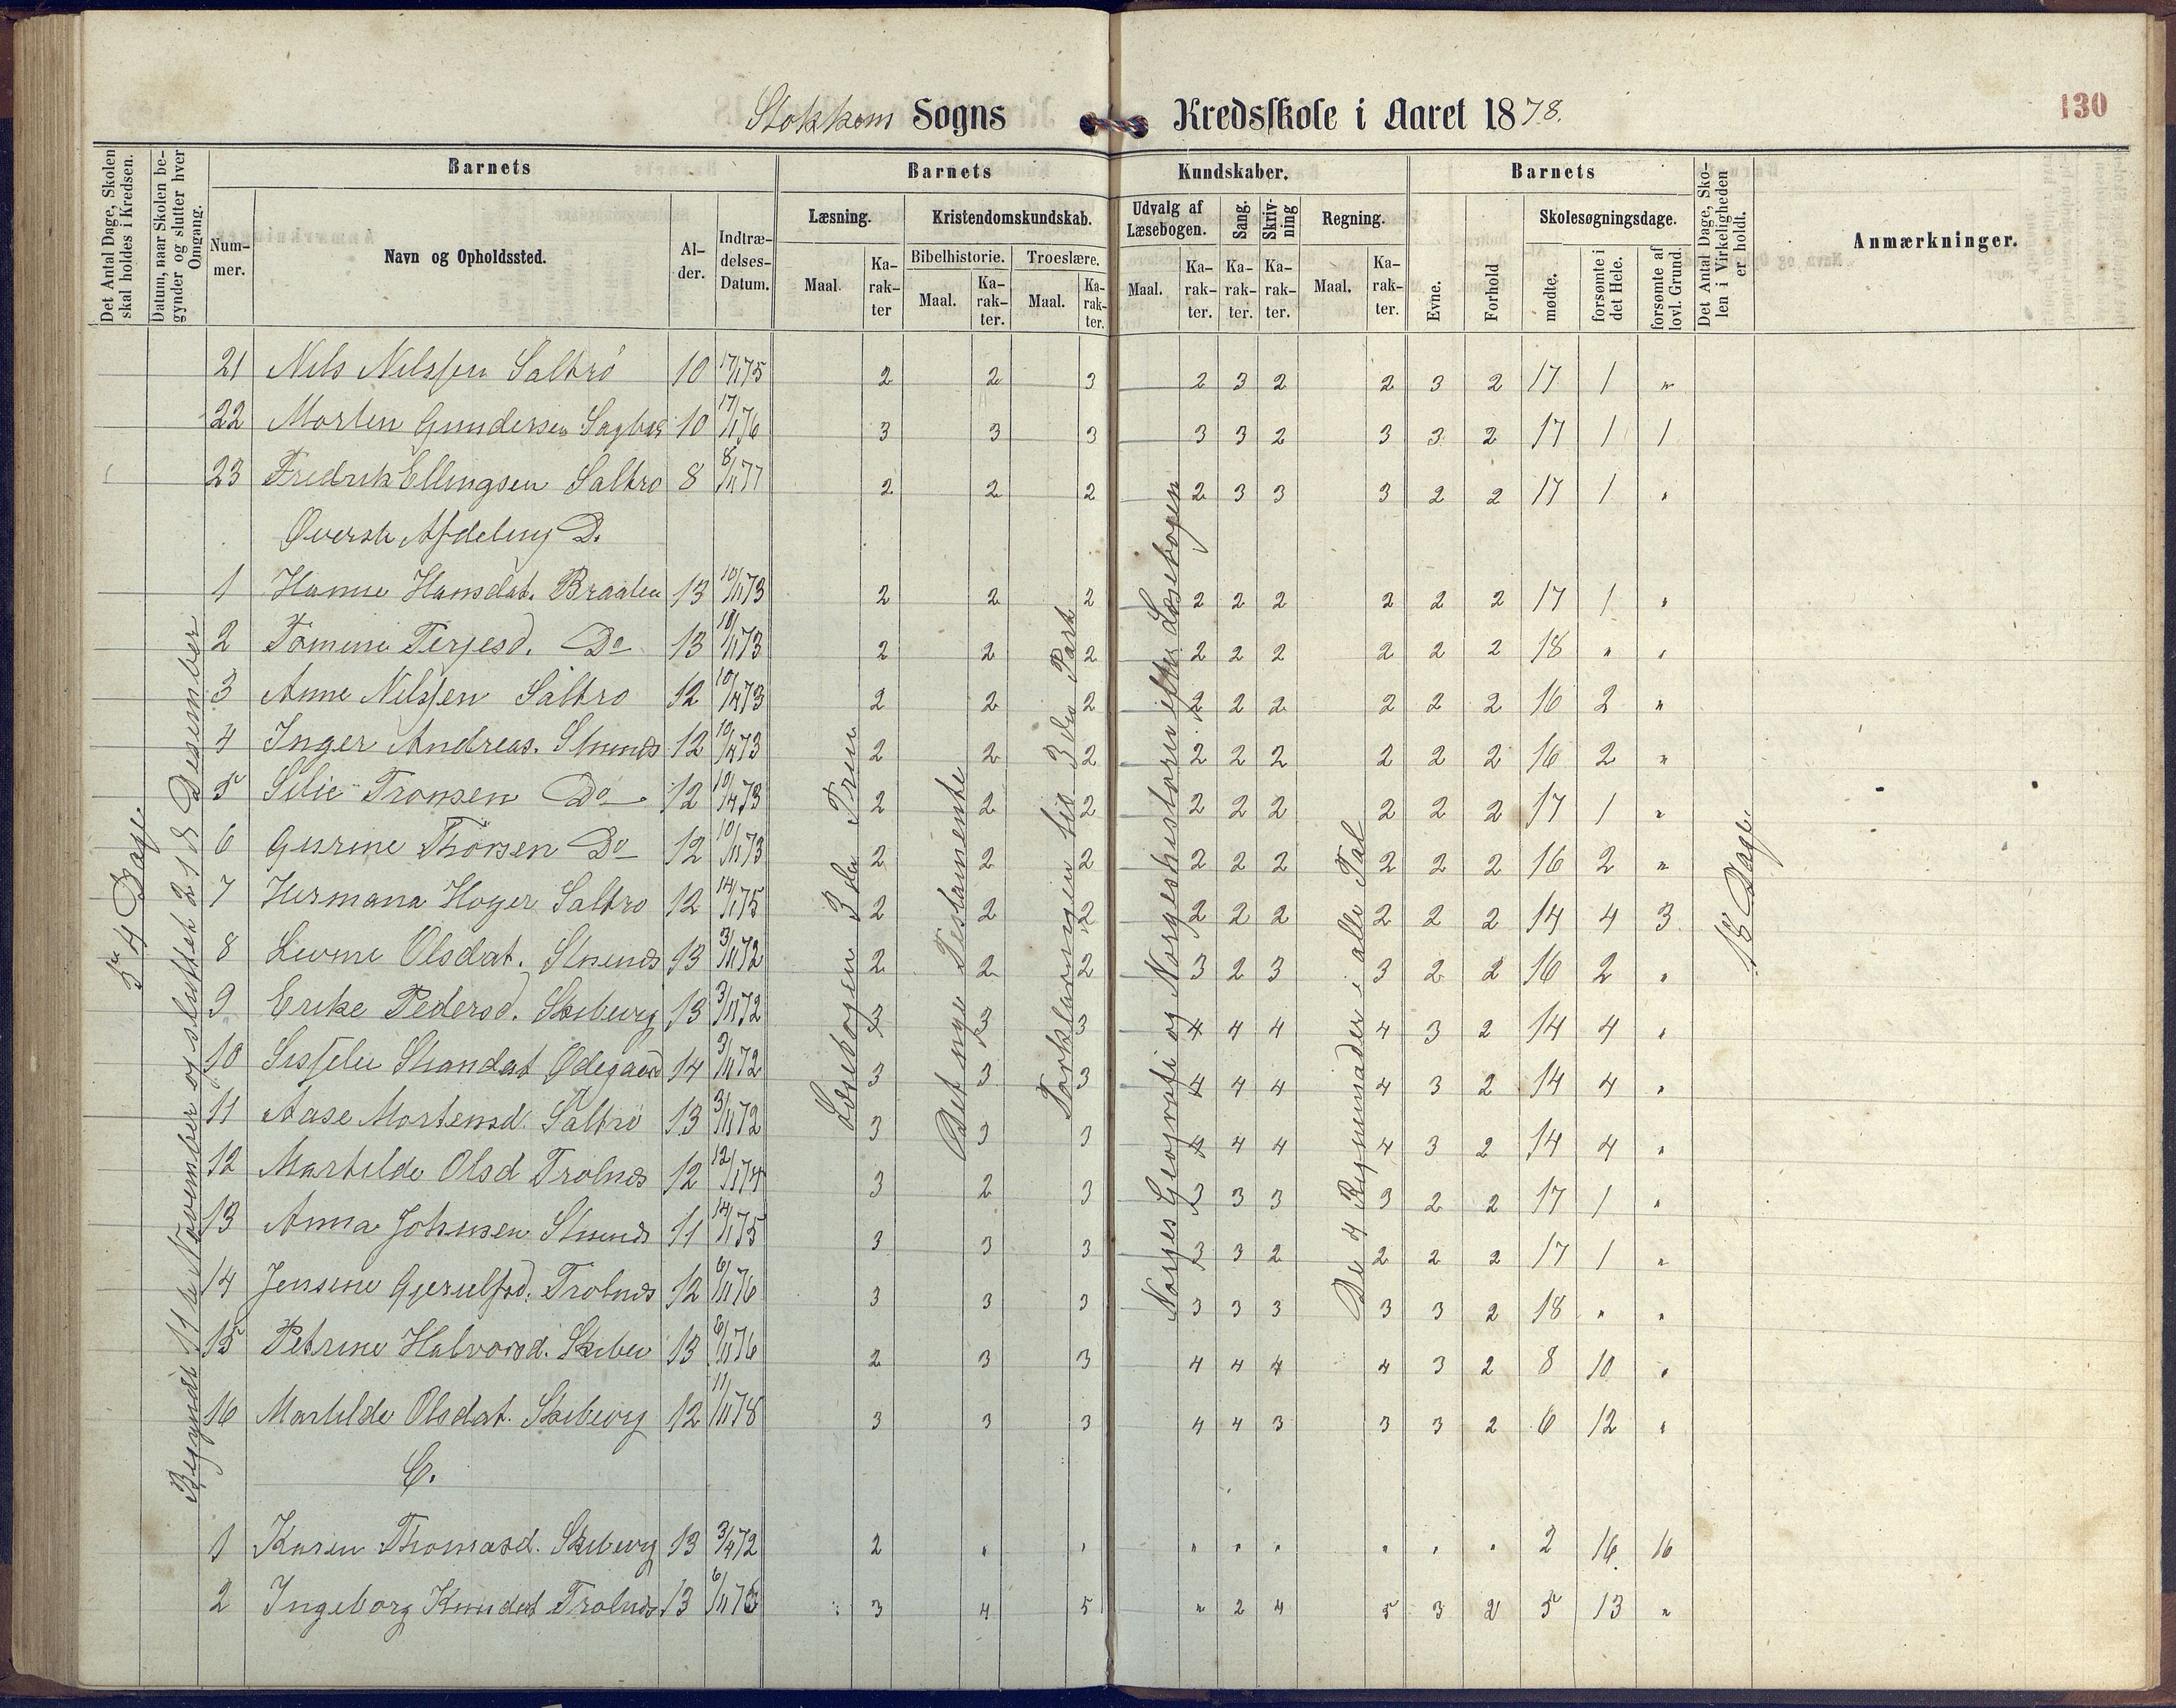 Stokken Sogns Kredsskole i Aaret 1878.
130
Det Antal Dage, Skolen skal holdes i Kredsen.
Datum, naar Skolen begynder og slutter hver Omgang.
Barnets
Nummer.
Navn og Opholdssted.
Alder.
Indtrædelses-Datum.
Barnets Kundskaber.
Læsning.
Maal.
Karakter
Kristendomskundskab.
Bibelhistorie.
Maal.
Karakter.
Troeslære.
Maal.
Karakter.
Udvalg af Læsebogen.
Maal.
Karakter.
Sang.
Karakter.
Skrivning
Karakter.
Regning.
Maal.
Karakter.
Barnets
Evne.
Forhold
Skolesøgningsdage.
mødte.
forsømte i det Hele.
forsømte af lovl. Grund.
Det Antal Dage, Skolen i Virkeligheden er holdt.
Anmærkninger.
54 Dage.
Begyndt 11te November og sluttet 21de Desember
Læsebogen 3die Trin
Det nye Testamente
Forklaringen til 3die Part
Norges Geografi og Norgeshistorien efter Læsebogen
De 4 Regnemaader i alle Tal
18 Dage.
21 Nils Nilssen Saltrö 10 17/1 75 2 2 3 2 3 2 2 3 2 17 1 "
22 Morten Gundersen 10 17/11 76 3 3 3 3 3 2 3 3 2 17 1 1
23 Fredrik Ellingsen Saltro 8 8/11 77 2 2 2 2 3 3 3 2 2 17 1 "
Øverste Afdeling D.
1 Hanne Hansdat. Braaten 13 10/11 73 2 2 2 2 2 2 2 2 2 17 1 "
2 Tomine Terjesd. Do 13 10/11 73 2 2 2 2 2 2 2 2 2 18 " "
3 Anne Nilssen Saltro 12 10/11 73 2 2 2 2 2 2 2 2 2 16 2 "
4 Inger Andreas. 12 10/11 73 2 2 2 2 2 2 2 2 2 16 2 "
5 Silie Tronsen Do 12 10/11 73 2 2 2 2 2 2 2 2 2 17 1 "
6 Gurine Thorsen Do 12 10/11 73 2 2 2 2 2 2 2 2 2 16 2 "
7 Hermana Hoyer Saltro 12 14/1 75 2 2 2 2 2 2 2 2 2 14 4 3
8 Olsdat. 13 3/11 72 2 2 2 3 2 3 3 2 2 16 2 "
9 Erike Pedersd. Skiberg 13 3/11 72 3 3 4 4 4 4 3 2 14 4 "
10 Ødegaard 14 3/11 72 3 3 3 4 4 4 4 3 2 14 4 "
11 Aase Mortensd. Saltrö 13 3/11 72 3 3 3 4 4 4 4 3 2 14 4 "
12 Martilde Olsd Trolnes 12 12/1 74 3 2 3 3 3 3 3 2 2 17 1 "
13 Anna Johnsen 11 14/1 75 3 3 3 3 3 2 2 2 2 17 1 "
14 Jensine Gjerulfsd. Trolnes 12 6/11 76 3 3 3 3 3 3 3 3 2 18 " "
15 Petrine Halvorsd. 13 6/11 76 2 3 3 4 4 4 4 3 2 8 10 "
16 Martilde Olsdat. Skiberg 12 11/11 78 3 3 3 4 4 3 3 3 2 6 12 "
C.
1 Karen Thomasd. Skiberg 13 3/4 72 2 " " " " " " " " 2 16 16
2 Ingeborg Knudsd Trolnes 13 6/11 3 4 5 " 2 4 5 3 2 5 13 "